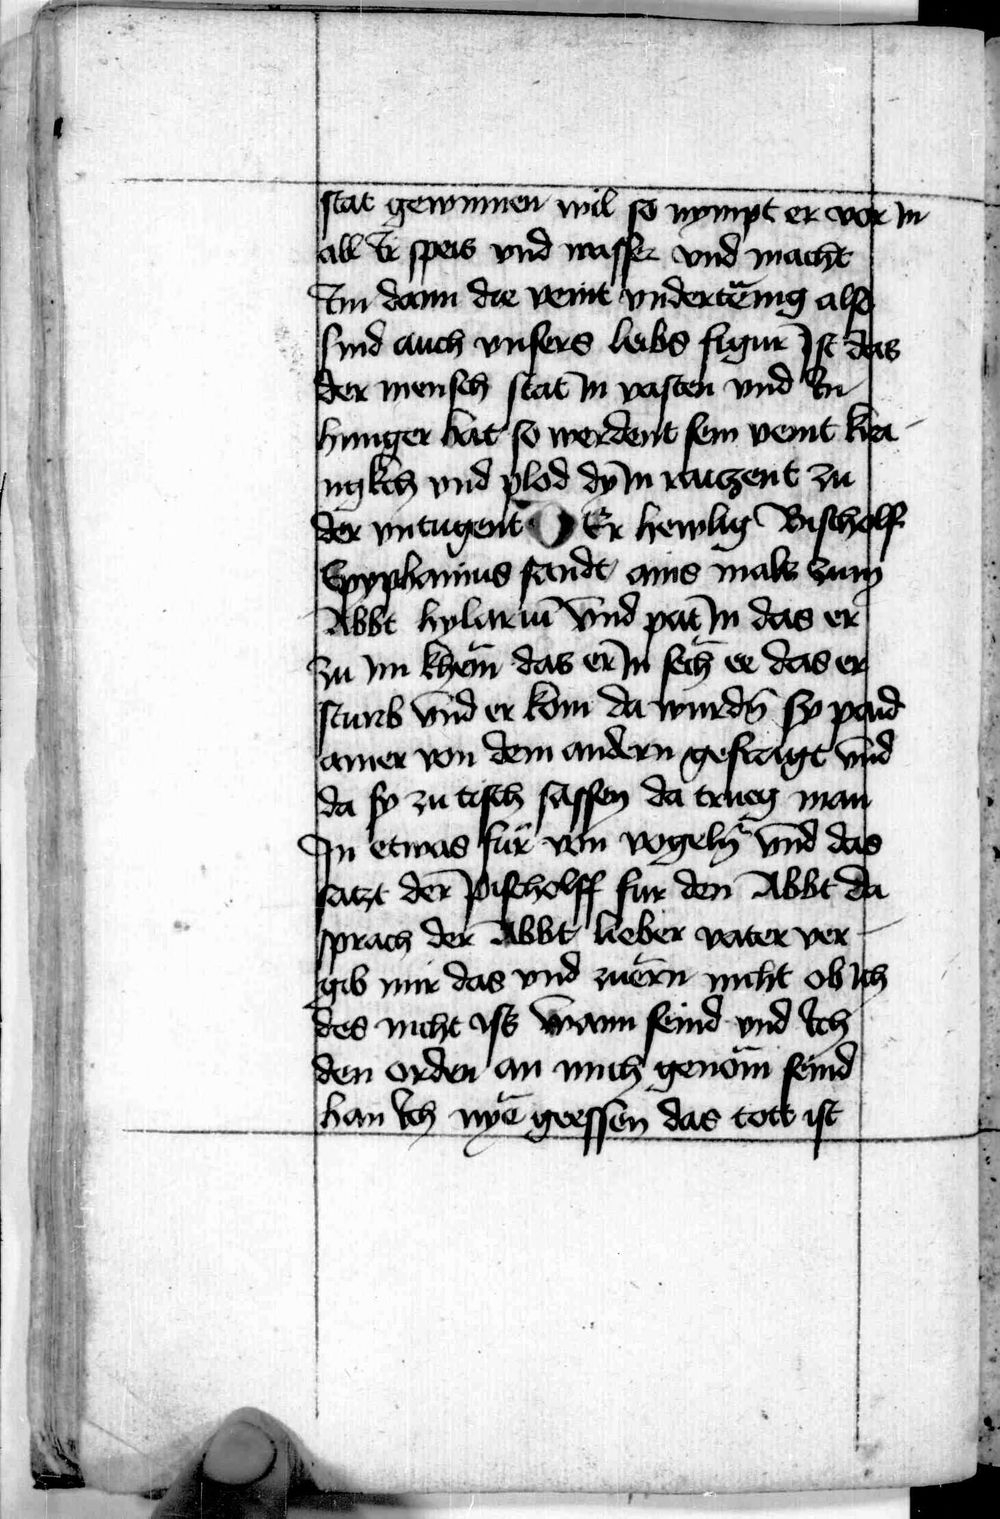 stat gewinnen wil so nympt er vor in
all Ir speis vnd wasser vnd macht
Im dann die veint vndertänig also
sind auch vnsers leibs figur Ist das
der mensch stat in vasten vnd In
hunger hat so werdent sein veint kra
ngkch vnd plöd dy in raitzent zu
der vntugent D Er hewlig Bischolf
Epyphanius sandt ains mals zum
Abbt hylariū vnd pat in das er
zu im khäm das er in sech ee das er
sturb vnd er kom da wurdn̄ sy paid
ainer von dem andern gefragt vnd
da sy zu tisch sassen da trueg man
In etwas für von vogeln vnd das
satzt der Pischolff fur den Abbt da
sprach der Abbt lieber vater ver
gib mir das vnd zuern nicht ob ich
des nicht iss wann seind vnd Ich
den orden an mich genōm seind
han Ich nye geessen das tott ist